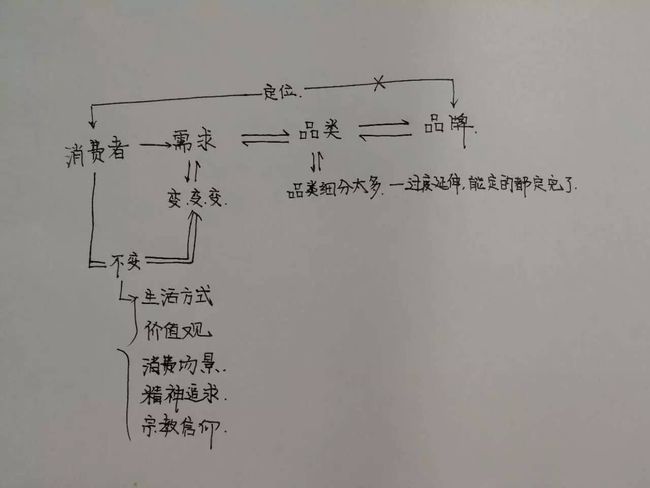 定位.
消费者 需求 品类 品牌.
变.变.变. 品类细分太多.一过度延伸,能定的都定完了.
不变
生活方式
价值观
消费场景.
精神追求.
宗教信仰.